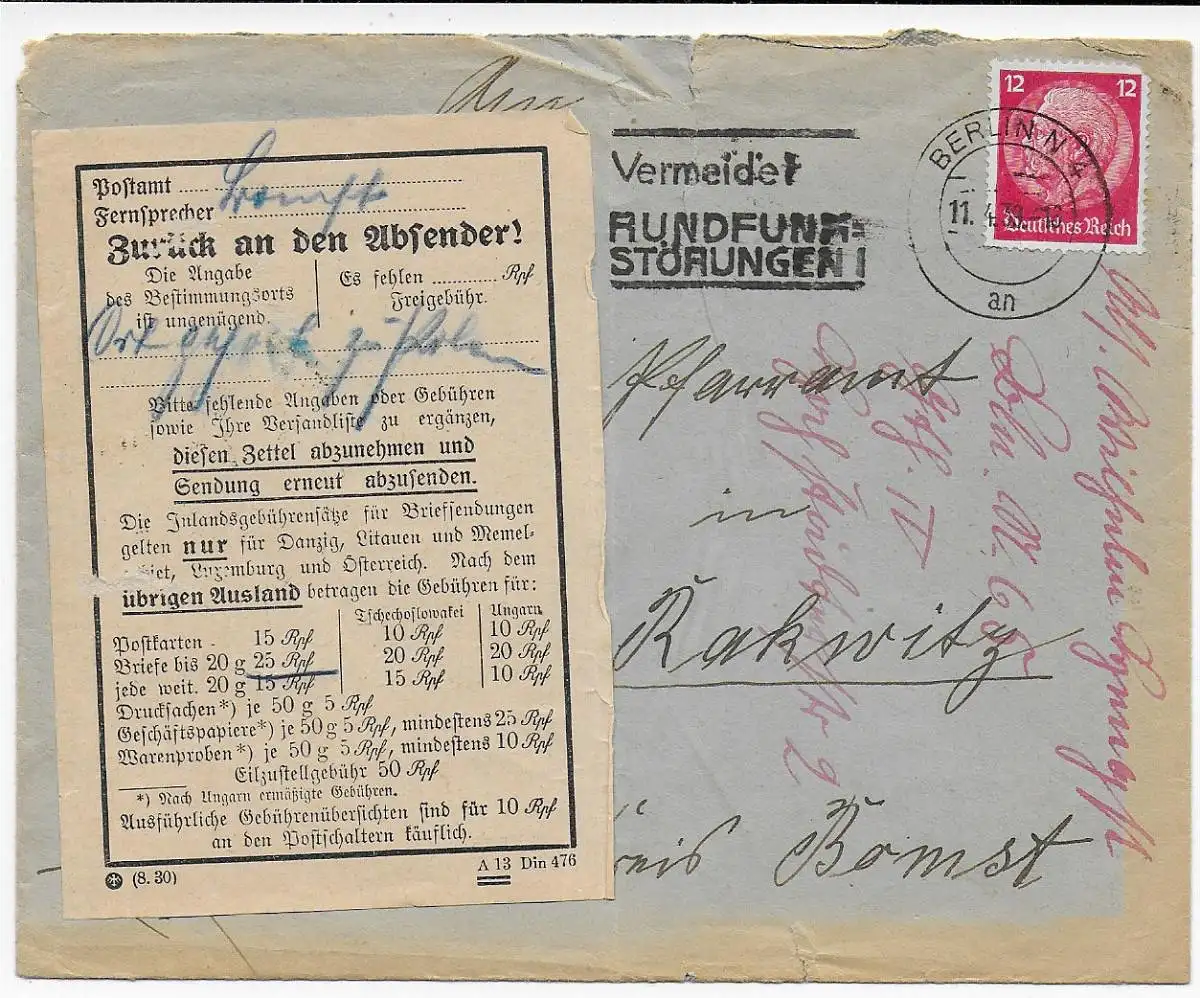 An
12 12
Deutsches Reich
BERLIN N 4
11. 4. 38
an
Vermeidet
RUNDFUNK=
STÖRUNGEN!
Postamt Bomst
Fernsprecher
Zurück an den Absender!
Die Angabe
des Bestimmungsorts
ist ungenügend.
Es fehlen Rpf
Freigebühr.
Ort gehört zu Polen
Bitte fehlende Angaben oder Gebühren
sowie Ihre Versandliste zu ergänzen,
diesen Zettel abzunehmen und
Sendung erneut abzusenden.
Die Inlandsgebührensätze für Briefsendungen
gelten nur für Danzig, Litauen und Memel-
gebiet, Luxemburg und Österreich. Nach dem
übrigen Ausland betragen die Gebühren für:
Tschechoslowakei Ungarn
Postkarten 15 Rpf 10 Rpf 10 Rpf
Briefe bis 20 g 25 Rpf 20 Rpf 20 Rpf
jede weit. 20 g 15 Rpf 15 Rpf 10 Rpf
Drucksachen*) je 50 g 5 Rpf
Geschäftspapiere*) je 50 g 5 Rpf, mindestens 25 Rpf
Warenproben*) je 50 g 5 Rpf, mindestens 10 Rpf
Eilzustellgebühr 50 Rpf
*) Nach Ungarn ermäßigte Gebühren.
Ausführliche Gebührenübersichten sind für 10 Rpf
an den Postschaltern käuflich.
(8. 30)
A 13 Din 476
Pfarramt
in
Rakwitz
Kreis Bomst